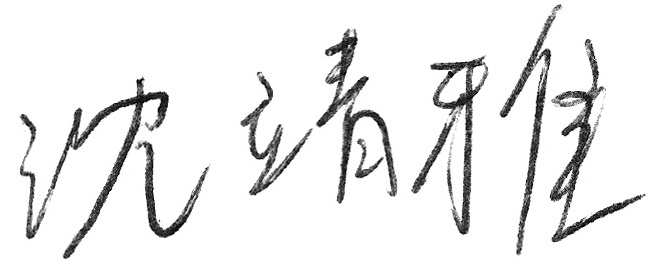 沈靖雅